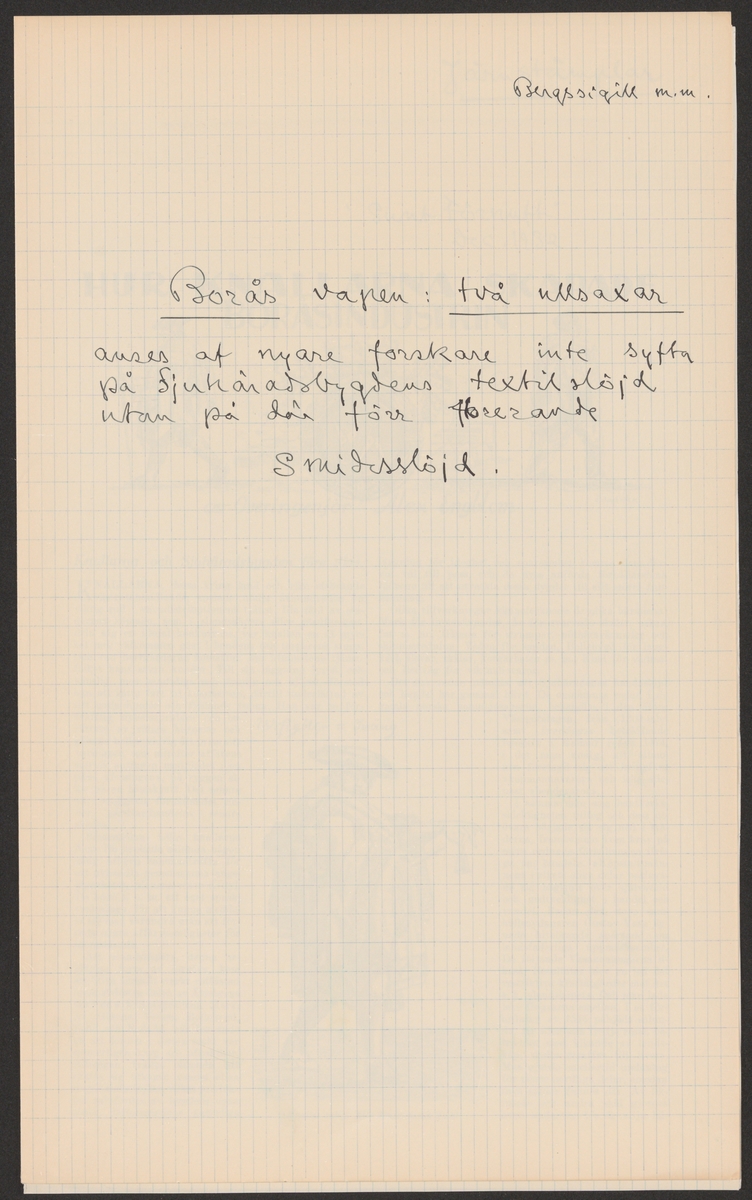 Bergssigill m.m.
Borås vapen: två ullsaxar
anses af nyare forskare inte syfta
på Sjuhäradsbygdens textilslöjd
utan på där förr florerande
Smidesslöjd.